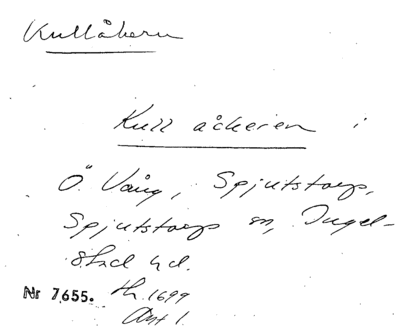 Kullåkern
Kull åckeren i
Ö. Vång, Spjutstorp,
Spjutstorps sn, Ingel-
stad hd.
Nr 7655. Lh. 1699
Akt 1.